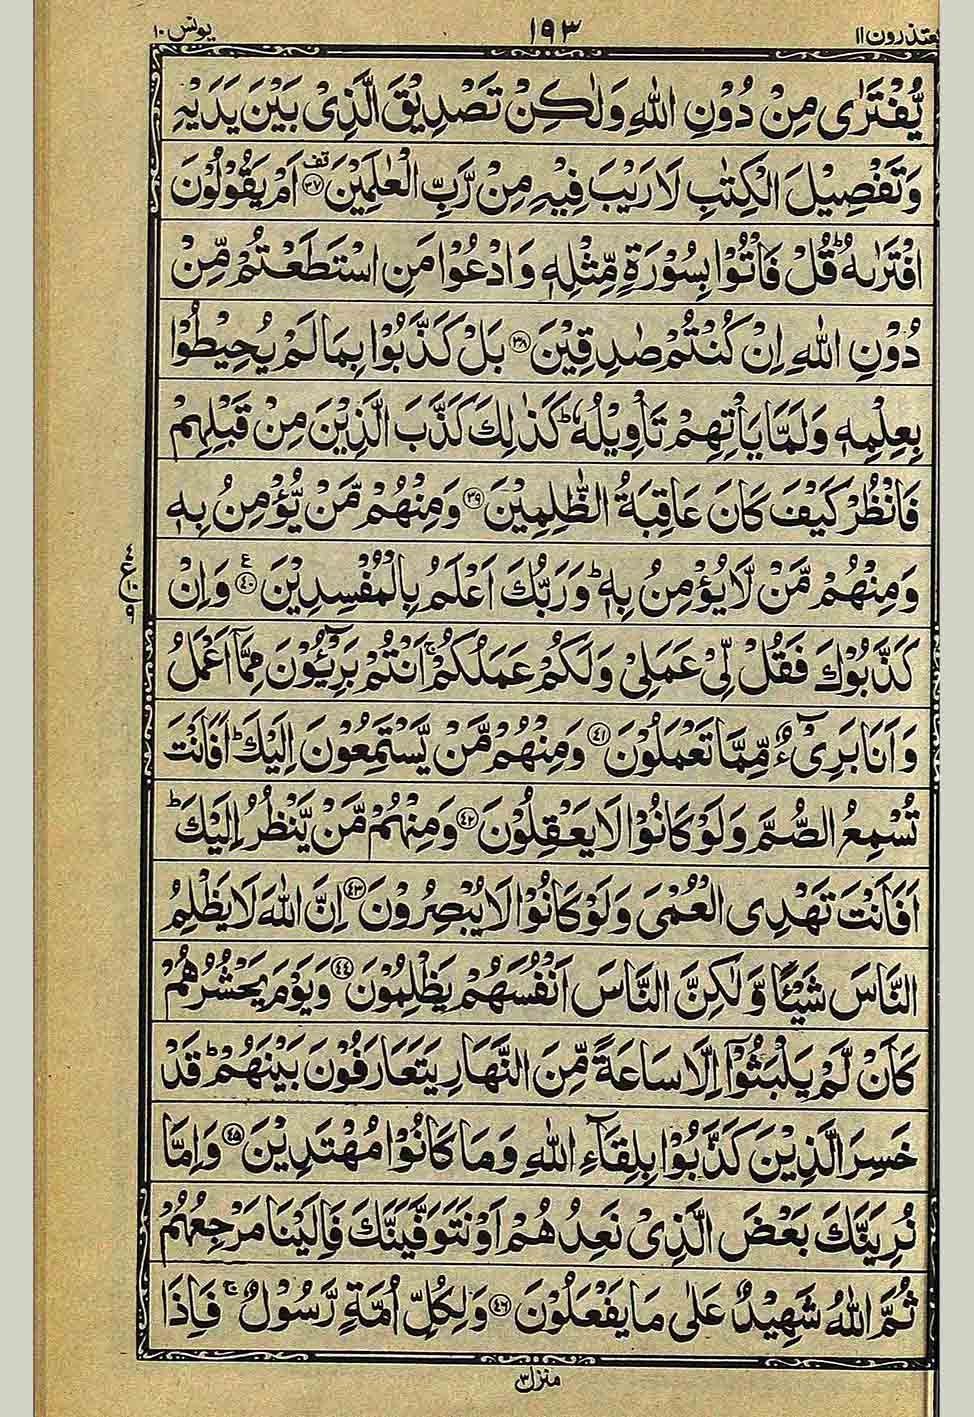 یعتذرون ۱۱
۱۹۳
یونس ۱۰
یُّفْتَرٰی مِنْ دُوْنِ اللّٰهِ وَلٰکِنْ تَصْدِیْقَ الَّذِیْ بَیْنَ یَدَیْهِ
وَتَفْصِیْلَ الْکِتٰبِ لَا رَیْبَ فِیْهِ مِنْ رَّبِّ الْعٰلَمِیْنَ ۣ قف ﴿۳۷﴾ اَمْ یَقُوْلُوْنَ
افْتَرٰىهُ ؕ قُلْ فَاْتُوْا بِسُوْرَةٍ مِّثْلِهٖ وَادْعُوْا مَنِ اسْتَطَعْتُمْ مِّنْ
دُوْنِ اللّٰهِ اِنْ کُنْتُمْ صٰدِقِیْنَ ﴿۳۸﴾ بَلْ کَذَّبُوْا بِمَا لَمْ یُحِیْطُوْا
بِعِلْمِهٖ وَلَمَّا یَاْتِهِمْ تَاْوِیْلُهٗ ؕ کَذٰلِكَ کَذَّبَ الَّذِیْنَ مِنْ قَبْلِهِمْ
فَانْظُرْ کَیْفَ کَانَ عَاقِبَةُ الظّٰلِمِیْنَ ﴿۳۹﴾ وَمِنْهُمْ مَّنْ یُّؤْمِنُ بِهٖ
وَمِنْهُمْ مَّنْ لَّا یُؤْمِنُ بِهٖ ؕ وَرَبُّكَ اَعْلَمُ بِالْمُفْسِدِیْنَ ﴿۴۰﴾ ع وَاِنْ
۴ ع ۱۰ ۹
کَذَّبُوْكَ فَقُلْ لِّیْ عَمَلِیْ وَلَکُمْ عَمَلُکُمْ ۚ اَنْتُمْ بَرِیْٓئُوْنَ مِمَّاۤ اَعْمَلُ
وَاَنَا بَرِیْٓءٌ مِّمَّا تَعْمَلُوْنَ ﴿۴۱﴾ وَمِنْهُمْ مَّنْ یَّسْتَمِعُوْنَ اِلَیْكَ ؕ اَفَاَنْتَ
تُسْمِعُ الصُّمَّ وَلَوْ کَانُوْا لَا یَعْقِلُوْنَ ﴿۴۲﴾ وَمِنْهُمْ مَّنْ یَّنْظُرُ اِلَیْكَ ؕ
اَفَاَنْتَ تَهْدِی الْعُمْیَ وَلَوْ کَانُوْا لَا یُبْصِرُوْنَ ﴿۴۳﴾ اِنَّ اللّٰهَ لَا یَظْلِمُ
النَّاسَ شَیْـًٔا وَّلٰکِنَّ النَّاسَ اَنْفُسَهُمْ یَظْلِمُوْنَ ﴿۴۴﴾ وَیَوْمَ یَحْشُرُهُمْ
کَاَنْ لَّمْ یَلْبَثُوْۤا اِلَّا سَاعَةً مِّنَ النَّهَارِ یَتَعَارَفُوْنَ بَیْنَهُمْ ؕ قَدْ
خَسِرَ الَّذِیْنَ کَذَّبُوْا بِلِقَآءِ اللّٰهِ وَمَا کَانُوْا مُهْتَدِیْنَ ﴿۴۵﴾ وَاِمَّا
نُرِیَنَّكَ بَعْضَ الَّذِیْ نَعِدُهُمْ اَوْ نَتَوَفَّیَنَّكَ فَاِلَیْنَا مَرْجِعُهُمْ
ثُمَّ اللّٰهُ شَهِیْدٌ عَلٰی مَا یَفْعَلُوْنَ ﴿۴۶﴾ وَلِکُلِّ اُمَّةٍ رَّسُوْلٌ ۚ فَاِذَا
منزل ۳